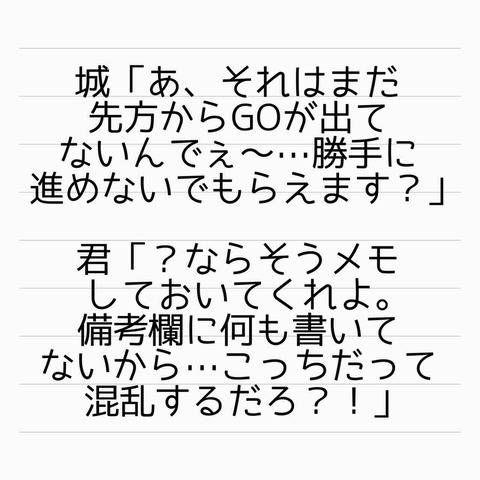 城「あ、それはまだ
先方からGOが出て
ないんでぇ〜…勝手に
進めないでもらえます？」
君「？ならそうメモ
しておいてくれよ。
備考欄に何も書いて
ないから…こっちだって
混乱するだろ？！」